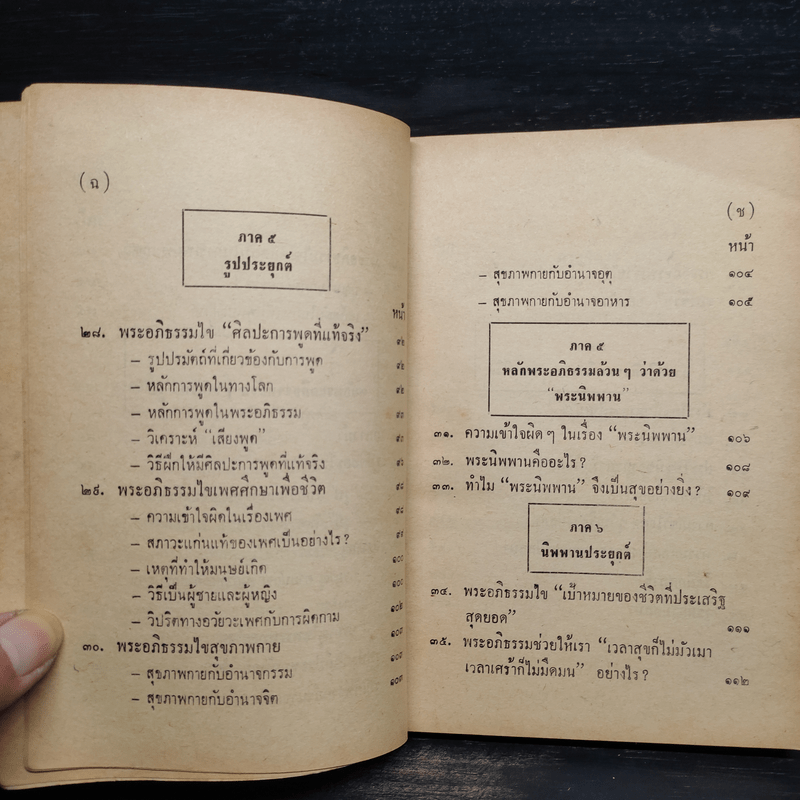 (ฉ)
ภาค ๕
รูปประยุกต์
หน้า
๒๘. พระอภิธรรมไข “ศิลปะการพูดที่แท้จริง”
– รูปปรมัตถ์ที่เกี่ยวข้องกับการพูด
– หลักการพูดในทางโลก
– หลักการพูดในพระอภิธรรม
– วิเคราะห์ “เสียงพูด”
– วิธีฝึกให้มีศิลปะการพูดที่แท้จริง
๒๙. พระอภิธรรมไขเพศศึกษาเพื่อชีวิต
– ความเข้าใจผิดในเรื่องเพศ
– สภาวะแก่นแท้ของเพศเป็นอย่างไร?
– เหตุที่ทำให้มนุษย์เกิด ๑๐๐
– วิธีเป็นผู้ชายและผู้หญิง ๑๐๐
– วิปริตทางอวัยวะเพศกับการผิดกาม ๑๐๒
๓๐. พระอภิธรรมไขสุขภาพกาย ๑๐๓
– สุขภาพกายกับอำนาจกรรม ๑๐๓
– สุขภาพกายกับอำนาจจิต ๑๐๓
(ช)
หน้า
– สุขภาพกายกับอำนาจอุตุ ๑๐๔
– สุขภาพกายกับอำนาจอาหาร ๑๐๕
ภาค ๕
หลักพระอภิธรรมล้วน ๆ ว่าด้วย
“พระนิพพาน”
๓๑. ความเข้าใจผิด ๆ ในเรื่อง “พระนิพพาน” ๑๐๖
๓๒. พระนิพพานคืออะไร? ๑๐๘
๓๓. ทำไม “พระนิพพาน” จึงเป็นสุขอย่างยิ่ง? ๑๐๙
ภาค ๖
นิพพานประยุกต์
๓๔. พระอภิธรรมไข “เป้าหมายของชีวิตที่ประเสริฐ
สุดยอด” ๑๑๑
๓๕. พระอภิธรรมช่วยให้เรา “เวลาสุขก็ไม่มัวเมา
เวลาเศร้าก็ไม่มืดมน” อย่างไร? ๑๑๒